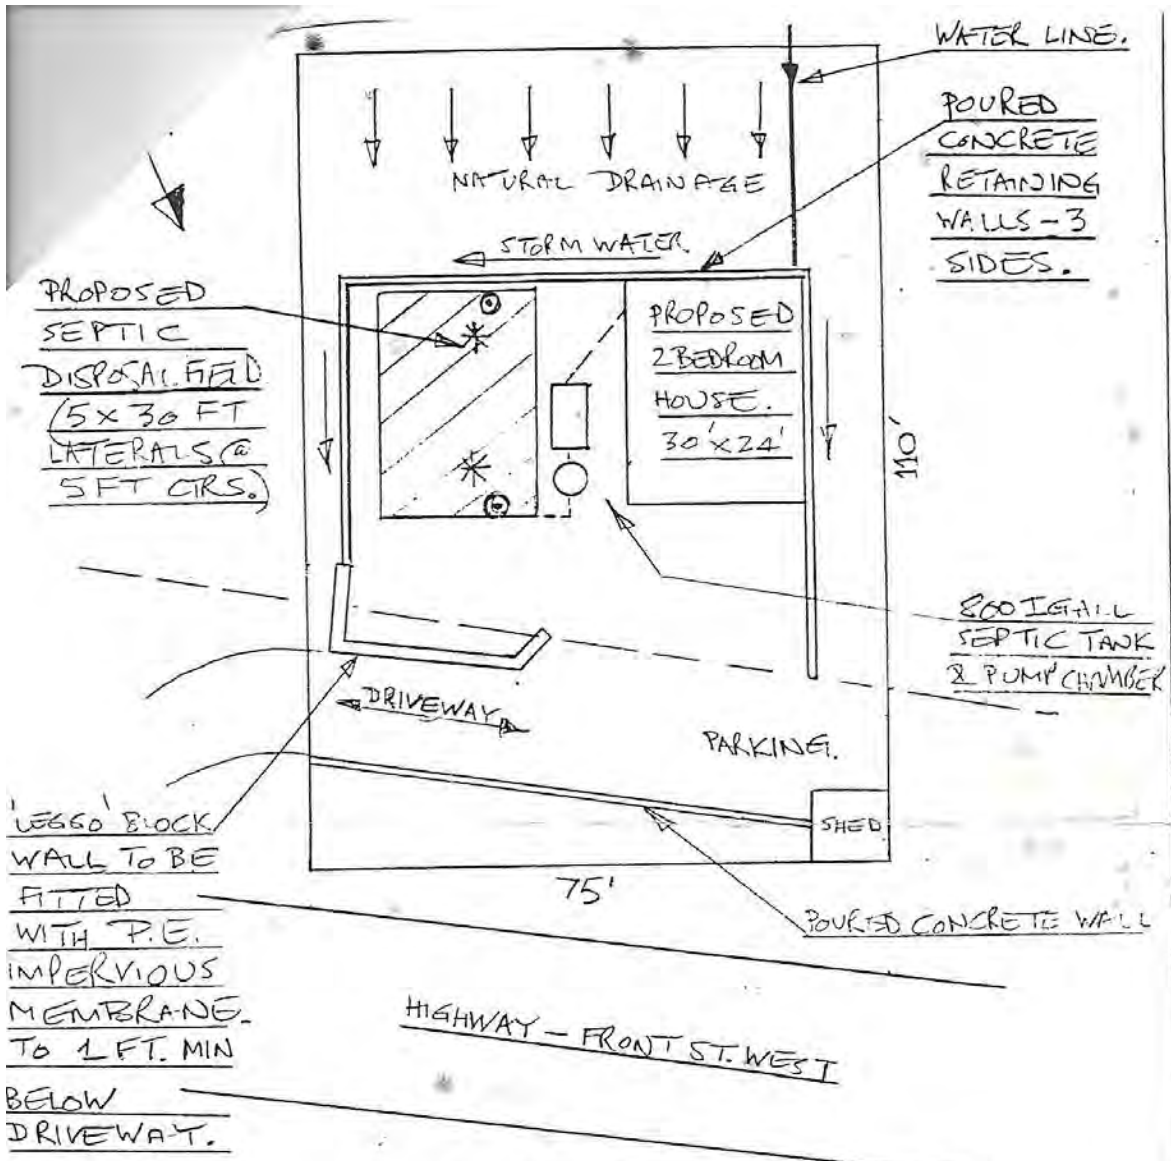 WATER LINE.
POURED
CONCRETE
RETAINING
WALLS - 3
SIDES.
NATURAL DRAINAGE
STORM WATER.
PROPOSED
SEPTIC
DISPOSAL FIELD
(5 x 30 FT
LATERALS @
5 FT CTRS.)
PROPOSED
2 BEDROOM
HOUSE.
30' x 24'
110'
800 IGALL
SEPTIC TANK
& PUMP CHAMBER
DRIVEWAY
PARKING.
SHED
'LEGGO' BLOCK
WALL TO BE
FITTED
WITH P.E.
IMPERVIOUS
MEMBRANE.
TO 1 FT. MIN
BELOW
DRIVEWAY.
75'
POURED CONCRETE WALL
HIGHWAY - FRONT ST. WEST